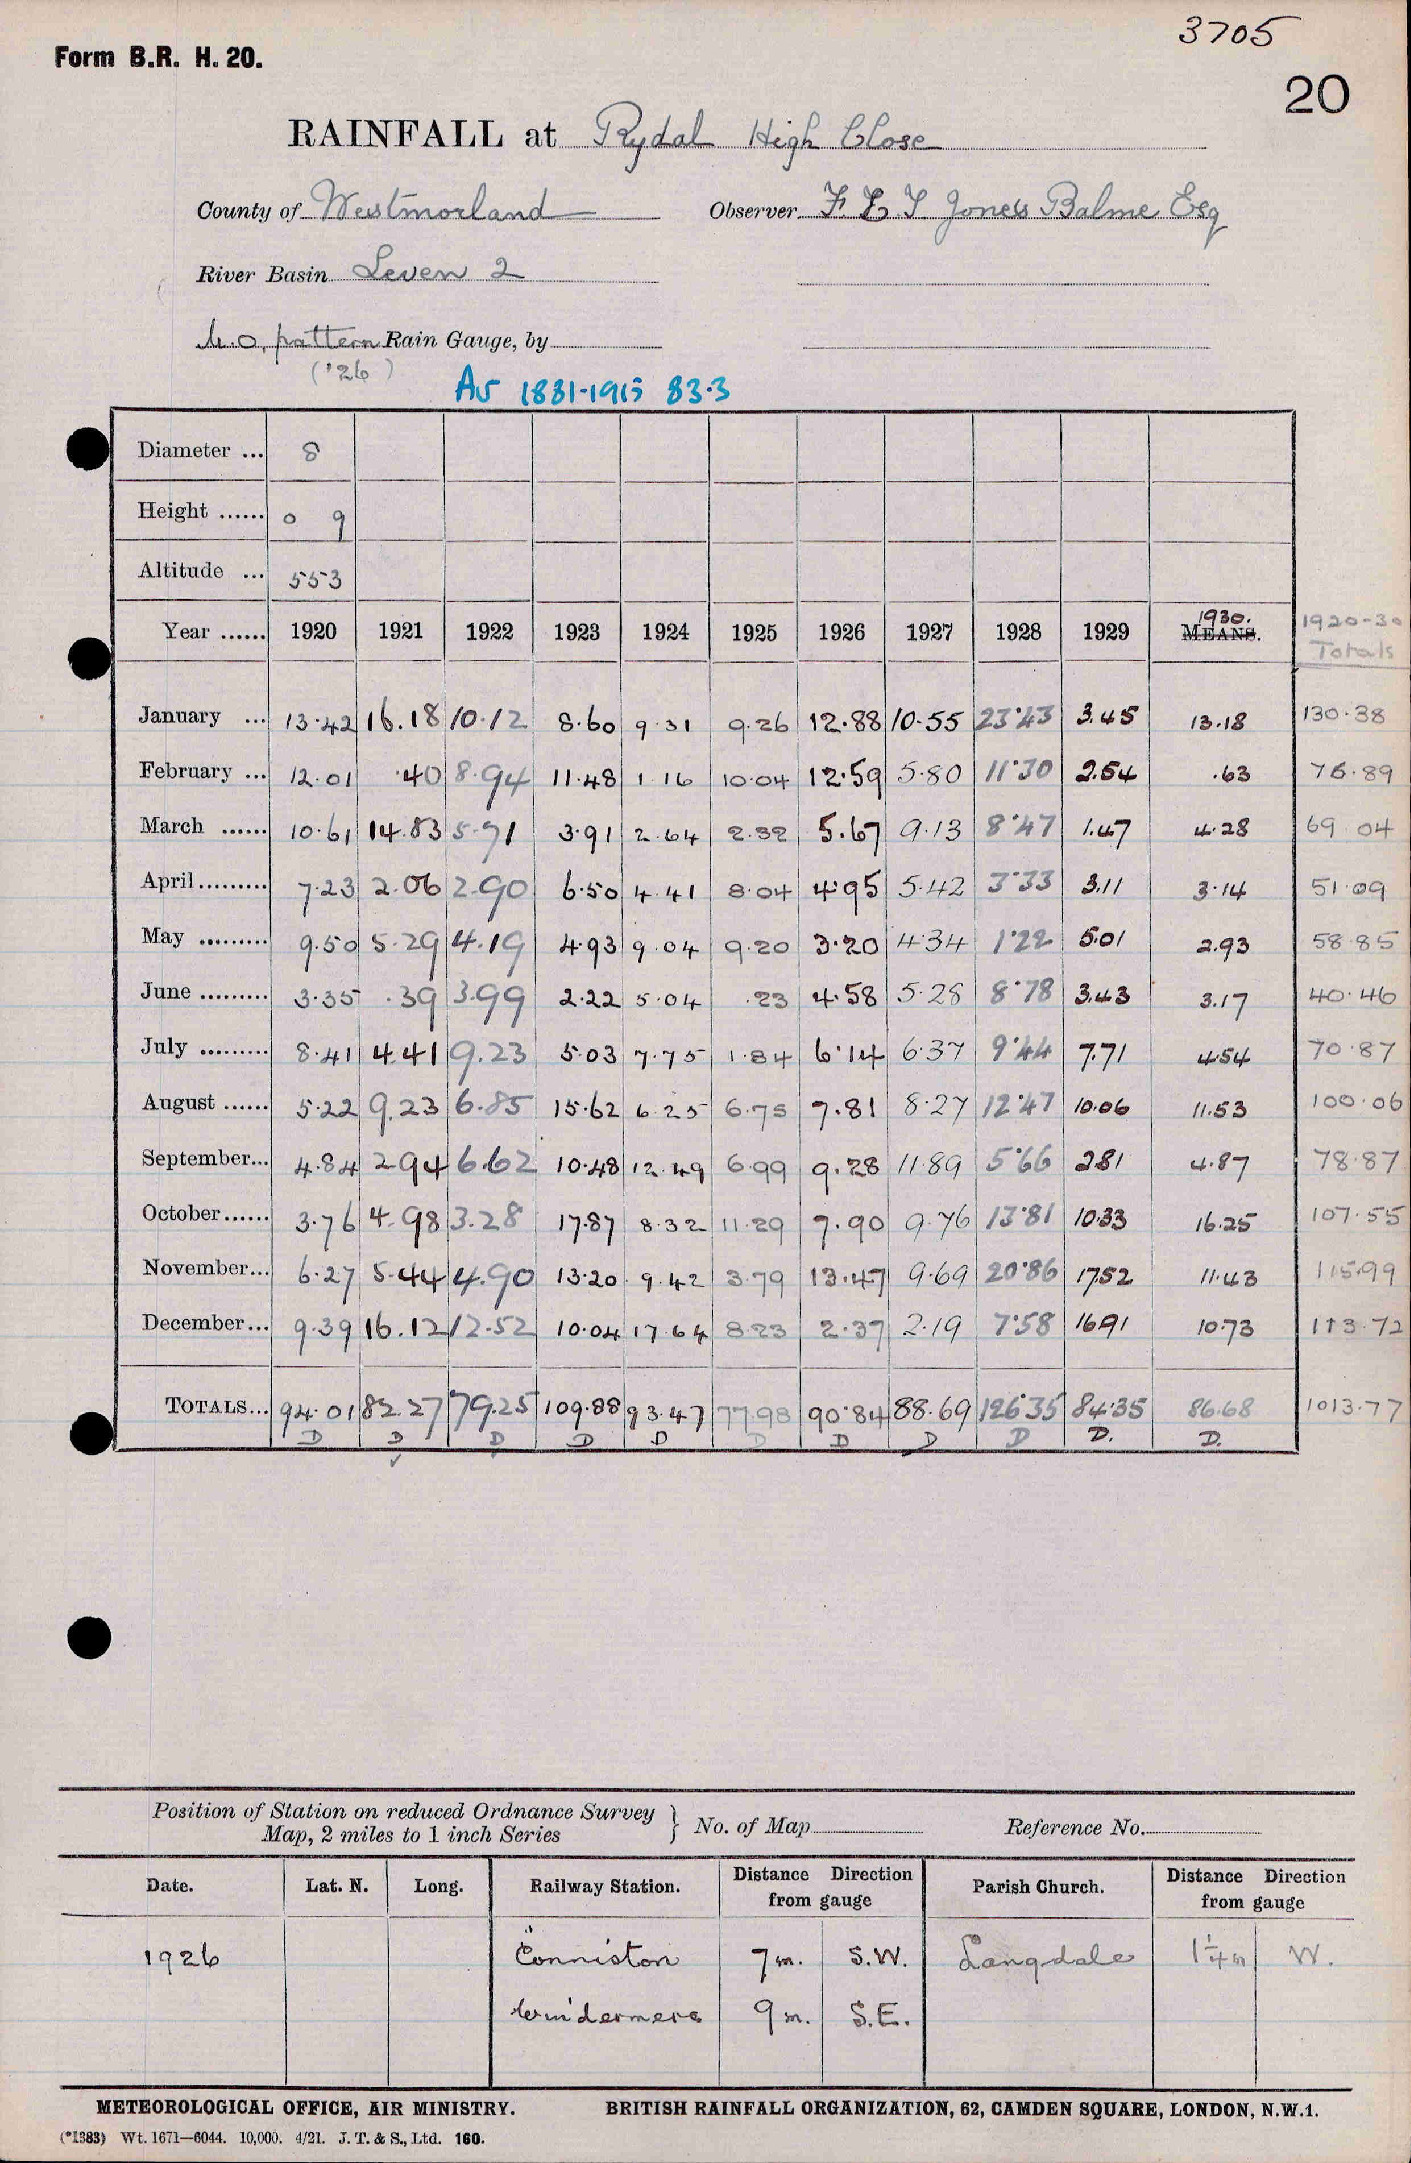 3705
Form B.R. H. 20.
20
RAINFALL at Rydal High Close
County of Westmorland Observer F. L. T Jones Balme Esq
River Basin Leven 2
M.O. pattern Rain Gauge, by
('26)
Av 1881-1915 83.3
Diameter ... 8
Height ...... 0 9
Altitude ... 553
Year ...... 1920 1921 1922 1923 1924 1925 1926 1927 1928 1929 1930. MEANS. 1920-30 Totals
January ... 13.42 16.18 10.12 8.60 9.31 9.26 12.88 10.55 23.43 3.45 13.18 130.38
February ... 12.01 .40 8.94 11.48 1.16 10.04 12.59 5.80 11.30 2.54 .63 76.89
March ...... 10.61 14.83 5.71 3.91 2.64 2.32 5.67 9.13 8.47 1.47 4.28 69.04
April ......... 7.23 2.06 2.90 6.50 4.41 8.04 4.95 5.42 3.33 3.11 3.14 51.09
May ......... 9.50 5.29 4.19 4.93 9.04 9.20 3.20 4.34 1.22 5.01 2.93 58.85
June ......... 3.35 .39 3.99 2.22 5.04 .23 4.58 5.28 8.78 3.43 3.17 40.46
July ......... 8.41 4.41 9.23 5.03 7.75 1.84 6.14 6.37 9.44 7.71 4.54 70.87
August ...... 5.22 9.23 6.85 15.62 6.25 6.75 7.81 8.27 12.47 10.06 11.53 100.06
September... 4.84 2.94 6.62 10.48 12.49 6.99 9.28 11.89 5.66 2.81 4.87 78.87
October...... 3.76 4.98 3.28 17.87 8.32 11.29 7.90 9.76 13.81 10.33 16.25 107.55
November... 6.27 5.44 4.90 13.20 9.42 3.79 13.47 9.69 20.86 17.52 11.43 115.99
December... 9.39 16.12 12.52 10.04 17.64 8.23 2.37 2.19 7.58 16.91 10.73 113.72
TOTALS... 94.01 82.27 79.25 109.88 93.47 77.98 90.84 88.69 126.35 84.35 86.68 1013.77
D D D D D D D D D D. D.
Position of Station on reduced Ordnance Survey
Map, 2 miles to 1 inch Series } No. of Map Reference No.
Date. Lat. N. Long. Railway Station. Distance Direction from gauge Parish Church. Distance Direction from gauge
1926 Conniston 7 m. S.W. Langdale 1¼ m W.
Windermere 9 m. S.E.
METEOROLOGICAL OFFICE, AIR MINISTRY. BRITISH RAINFALL ORGANIZATION, 62, CAMDEN SQUARE, LONDON, N.W.1.
(*1383) Wt. 1671—6044. 10,000. 4/21. J. T. & S., Ltd. 160.